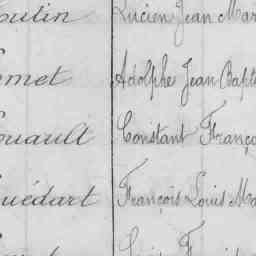 outin Lucien Jean Mar
omet Adolphe Jean Bapt
ouault Constant Franço
uédart François Louis Ma